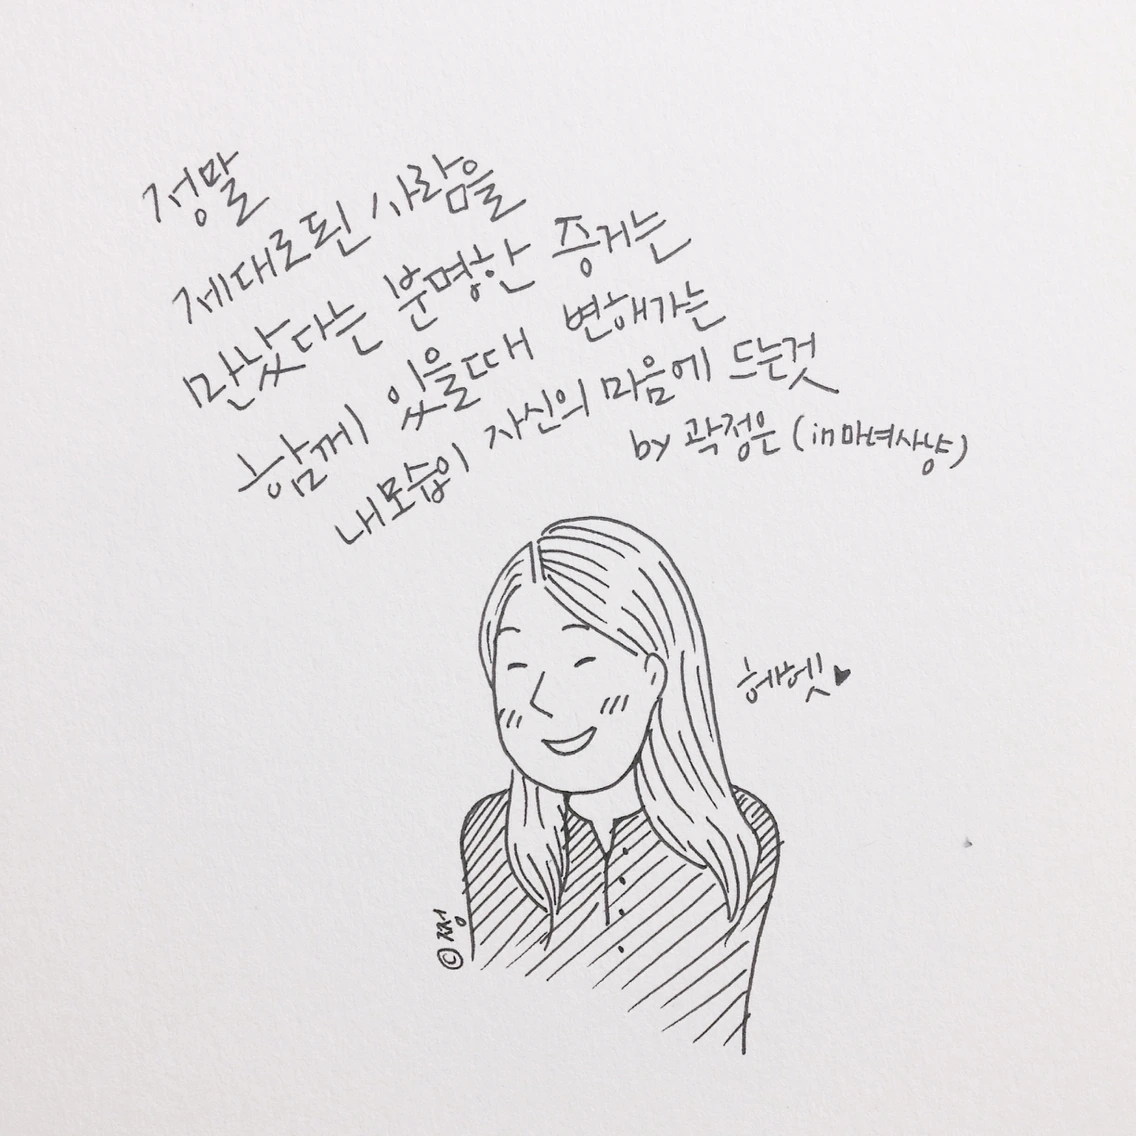 정말
제대로된 사람을
만났다는 분명한 증거는
함께 있을때 변해가는
내모습이 자신의 마음에 드는것
by 곽정은 (in마녀사냥)
헤벳♥
ⓒ 쩡